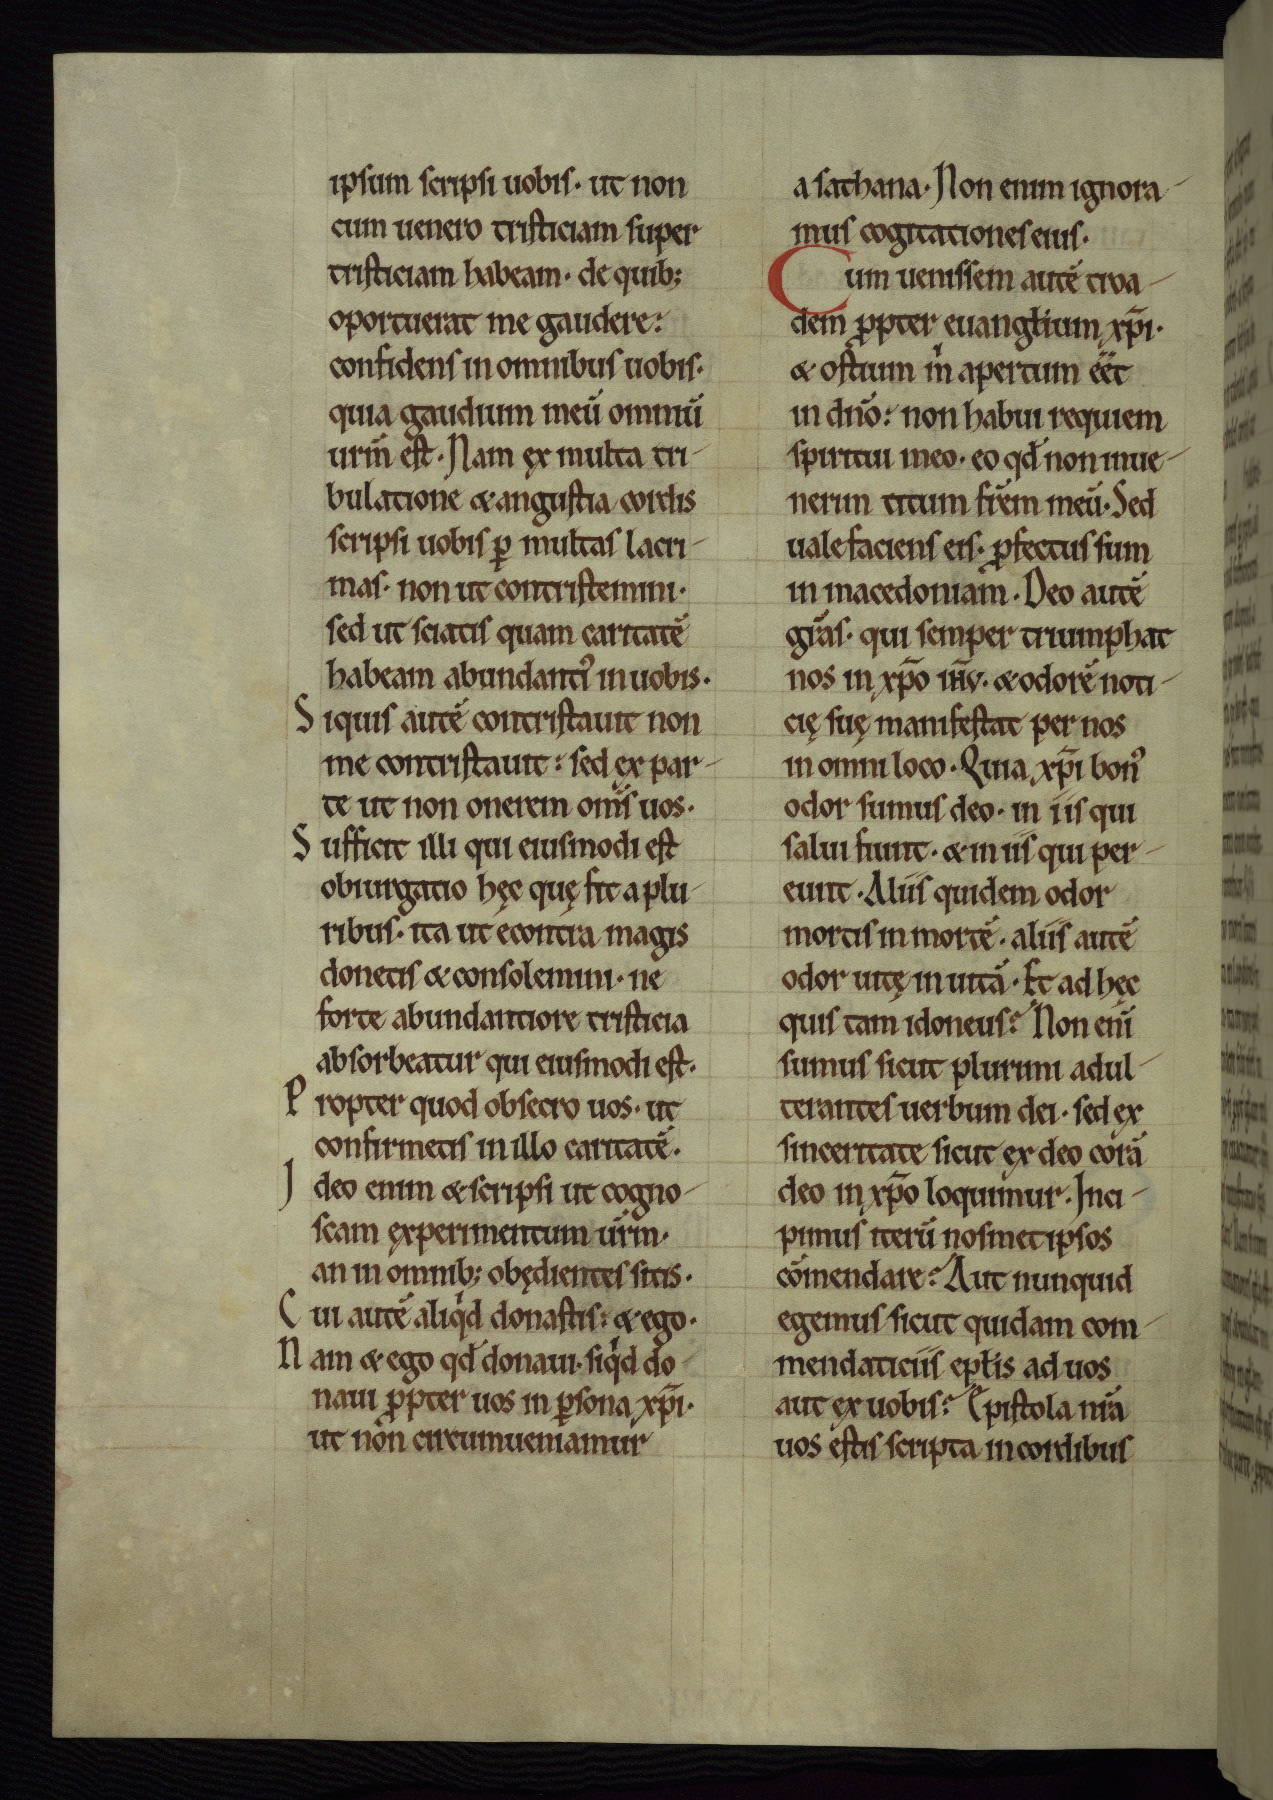 ipsum scripsi uobis· ut non
cum uenero tristiciam super
tristiciam habeam· de quib;
oportuerat me gaudere:
confidens in omnibus uobis·
quia gaudium meū omniū
urm̄ est· Nam ex multa tri-
bulatione & angustia cordis
scripsi uobis ꝑ multas lacri-
mas· non ut contristemini·
sed ut sciatis quam caritatē
habeam abundantiꝰ in uobis·
Siquis autē contristauit non
me contristauit: sed ex par-
te ut non onerem om̄s uos·
Sufficit illi qui eiusmodi est
obiurgatio hęc quę fit a plu-
ribus· ita ut econtra magis
donetis & consolemini· ne
forte abundantiore tristicia
absorbeatur qui eiusmodi est·
Propter quod obsecro uos· ut
confirmetis in illo caritatē·
Ideo enim & scripsi ut cogno-
scam experimentum ur̄m·
an in omnib; obędientes sitis·
Cui autē aliqd donastis: & ego·
Nam & ego qd̄ donaui· siqd do-
naui ꝓpter uos in ꝑsona xp̄i·
ut non circumueniamur
a sathana· Non enim ignora-
mus cogitationes eius·
Cum uenissem autē troa-
dem ꝓpter euangłium xp̄i·
& ostium m̄ apertum eēt
in dn̄o: non habui requiem
spiritui meo· eo qd̄ non inue-
nerim titum fr̄em meū· Sed
uale faciens eis· ꝓfectus sum
in macedoniam· Deo autē
gr̄as· qui semper triumphat
nos in xp̄o ih̄u· & odorē noti-
cię suę manifestat per nos
in omni loco· Quia xp̄i bonꝰ
odor sumus deo· in iis qui
salui fiunt· & in iis qui per-
eunt· Aliis quidem odor
mortis in mortē· aliis autē
odor uitę in uitā· Et ad hęc
quis tam idoneus? Non eni̅
sumus sicut plurimi adul-
terantes uerbum dei· sed ex
sinceritate sicut ex deo corā
deo in xp̄o loquimur· Inci-
pimus iterū nosmetipsos
cōmendare? Aut nunquid
egemus sicut quidam com-
mendaticiis epłis ad uos
aut ex uobis? Epistola nr̄a
uos estis scripta in cordibus